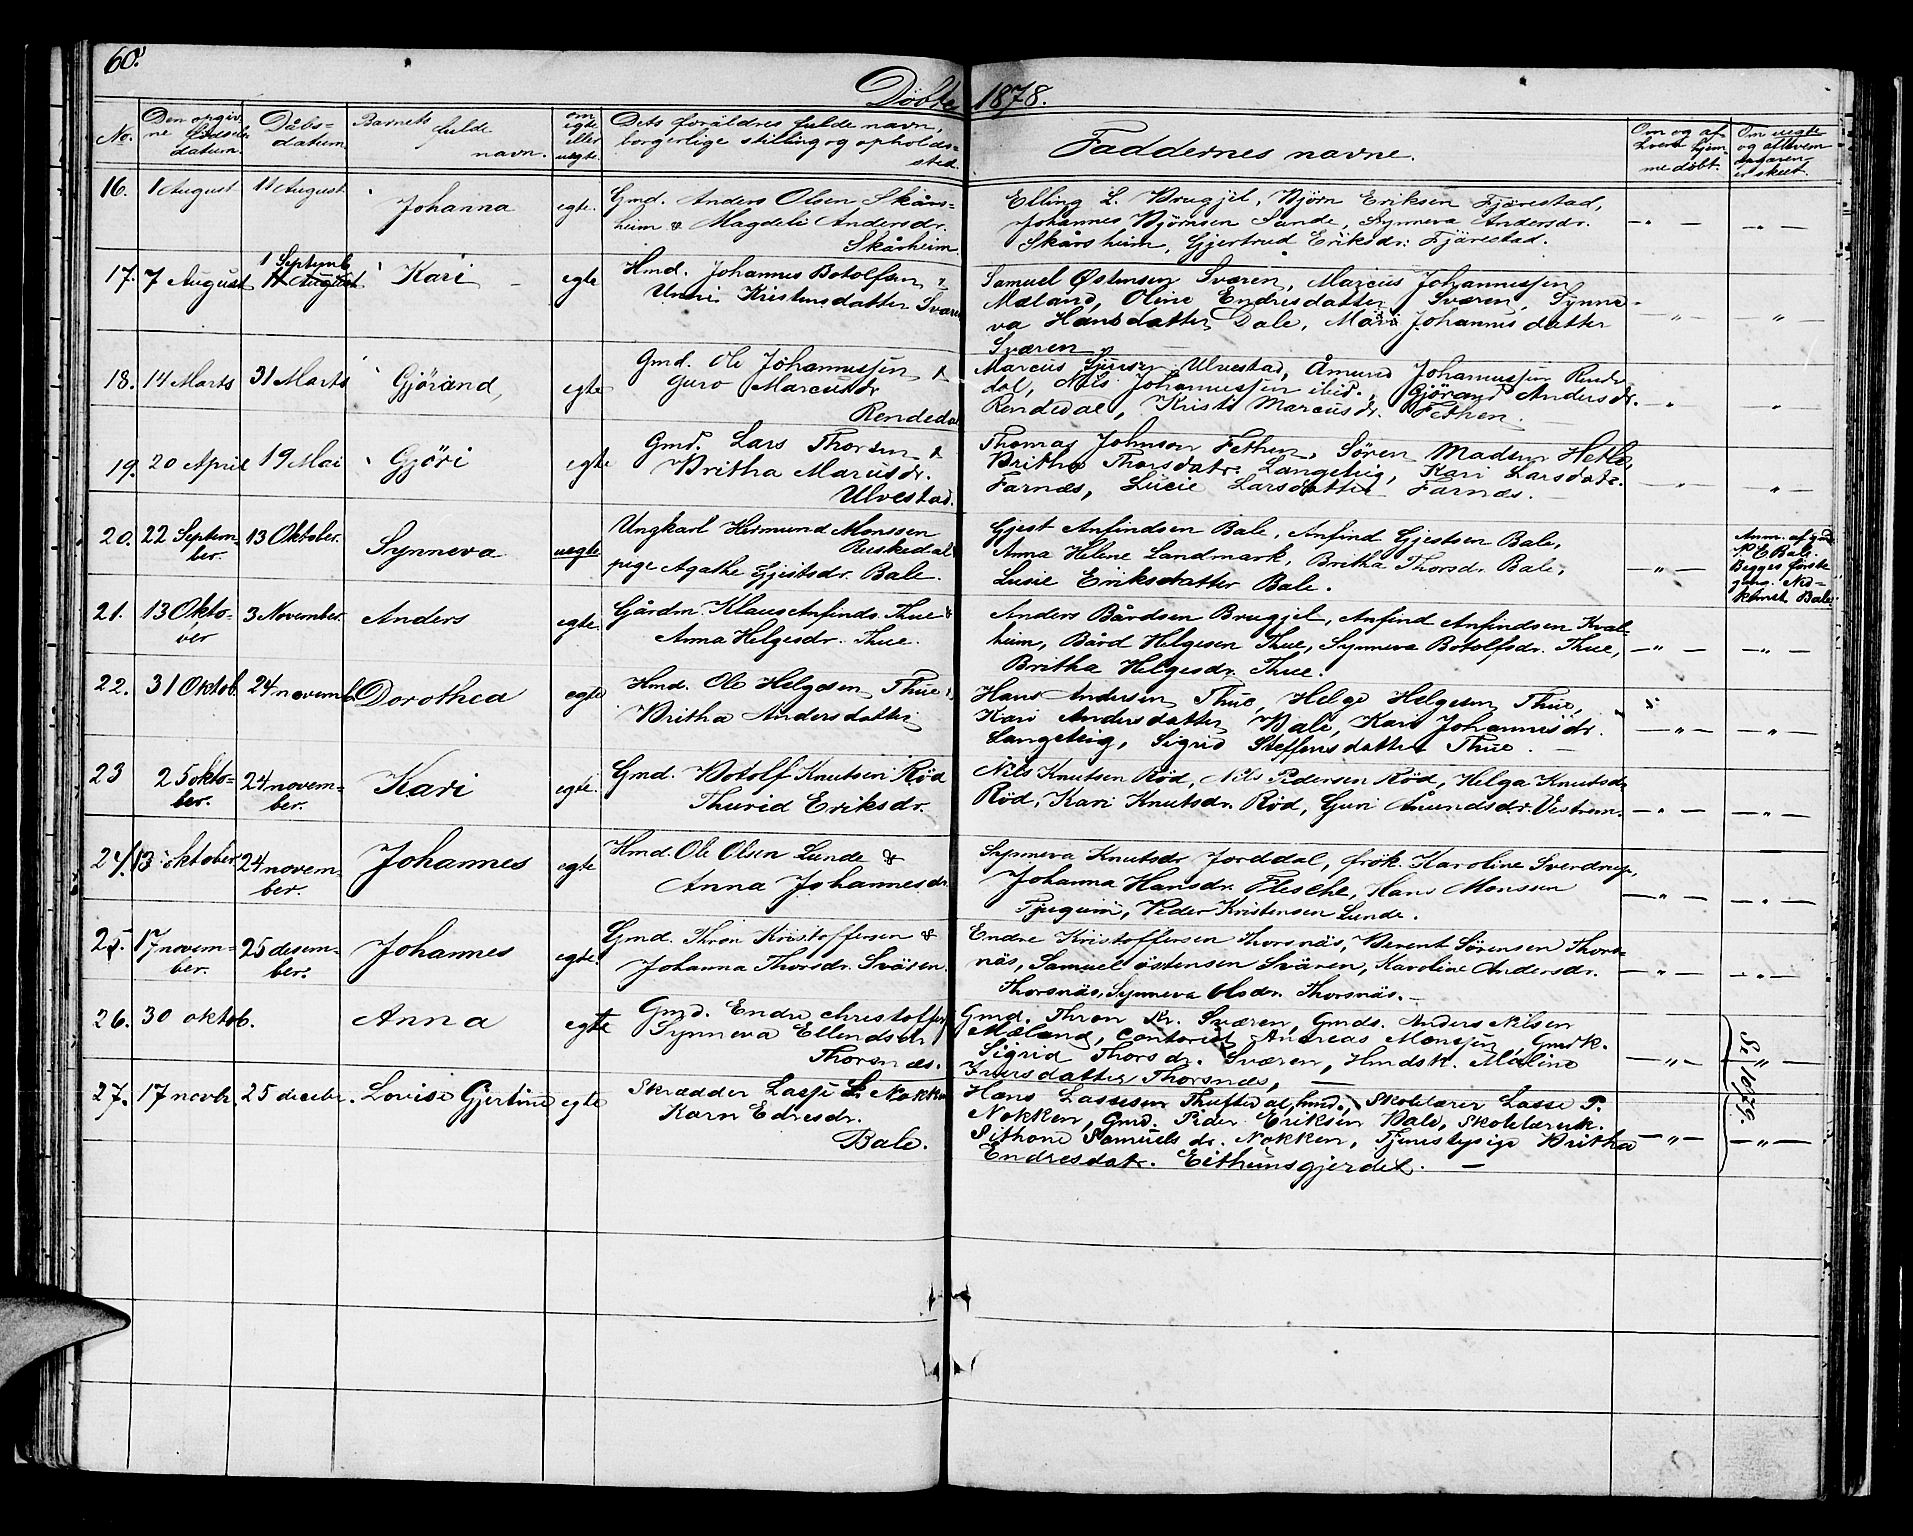 60.
Döbte 1878.
No.
Den opgivne födselsdatum.
Dåbsdatum.
Barnets fulde navn.
om egte eller uegte.
Dets foräldres fulde navn, borgerlige stilling og opholdssted.
Faddernes navne.
Om og af hvem hjemmedöbt.
Om uegte og at hvem angaven er skeet.
16. 1 August 11 August Johanna egte. Gmd. Anders Olsen Skårsheim & Magdeli Andersdr. Skårheim
Elling L. Brugjel, Björn Eriksen Fjärestad,
Johannes Björnsen Sande, Synneva Andersdr.
Skårsheim, Gjertrud Eriksdr. Fjärestad.
17. 7 August 1 Septemb. 11 August. Kari egte Hmd. Johannes Botolfsen & Unni Kristensdatter Sværen
Samuel Østensen Sværen, Marcus Johannessen
Mæland, Oline Endresdatter Sværen, Synne-
va Hansdatter Dale, Mari Johannesdatter
Sværen
18. 14 Marts 31 Marts Gjörand, egte Gmd. Ole Johannessen & Guro Marcusdr Rendedal
Marcus Ulvestad, Åmund Johannessen Rende
dal, Nils Johannessen ibid., Gjörand Andersdr.
Rendedal, Kristi Marcusdr. Fethen.
19. 20 April 19 Mai Gjöri egte Gmd. Lars Thorsen & Britha Marcusdr. Ulvestad.
Thomas Johnson Fethen, Sören Madsen Hetle,
Britha Thorsdatr. Langeteig, Kari Larsdatr.
Farnæs, Lucie Larsdatter Farnæs.
20. 22 September. 13 Oktober. Synneva uegte Ungkarl Hermund Monssen Reskedal pige Agathe Gjestsdr. Bale.
Gjest Anfindsen Bale, Anfind Gjestsen Bale,
Anna Helene Landmark, Britha Thorsdr. Bale,
Lusie Eriksdatter Bale.
Anm. af
Bale.
Begges förste
gang.
Bale.
21. 13 Oktober 3 November. Anders egte. Gårdm. Klaus Anfinds. Thue & Anna Helgesdr. Thue.
Anders Bårdsen Brugjel, Anfind Anfindsen Kval-
heim, Bård Helgesen Thue, Synneva Botolfsdr. Thue,
Britha Helgesdr. Thue.
22. 31 Oktob. 24 novemb. Dorothea egte Hmd. Ole Helgesen Thue & Britha Andersdatter
Hans Andersen Thue, Helge Helgesen Thue,
Kari Andersdatter Bale, Kari Johannesdr.
Langeteig, Sigrid Steffensdatter Thue.
23 25 oktober. 24 november. Kari egte. Gmd. Botolf Knutsen Röd Thurid Eriksdr.
Nils Knutsen Röd, Nils Pedersen Röd, Helga Knutsdr
Röd, Kari Knutsdr. Röd, Guri Åmundsdr. Vestrem.
24. 13 oktober. 24 november. Johannes egte Hmd. Ole Olsen Lunde & Anna Johannesdr.
Synneva Knutsdr Jorddal, frök. Karoline Sverdrup,
Johanna Hansdr. Flesche, Hans Monssen
Tjugum, Peder Kristensen Lunde.
25. 17 november. 25 desember. Johannes egte. Gmd. Thron Kristoffersen & Johanna Thorsdr. Svären.
Endre Kristoffersen Thorsnäs, Berent Sörensen Thors-
näs, Samuel Östensen Svären, Karoline Andersdr.
Thorsnäs, Synneva Olsdr. Thorsnäs.
26. 30 oktob. Anna egte Gmd. Endre Christoffers. Synneva Ellendsdr. Thorsnæs.
Gmd. Thron Kr. Sværen, Gmds. Anders Nilsen
Mæland, Contorist Andreas Monssen Gmdk.
Sigrid Thorsdr. Sværen, Hmdsk. Maline
Iversdatter Thorsnæs,
Se 1879.
27. 17 novbr. 25 decebr. Lovise Gjertine egte Skrædder Lasse L. Nokken Karn Edresdr. Bale.
Hans Lassesen Thuftedal, hmd., Skolelærer Lasse P.
Nokken, Gmd. Peder Eriksen Bale, Skolelærerk.
Sithone Samuelsdr. Nokken, Tjenestepige Britha
Endresdatr. Eithungsgjerdet.